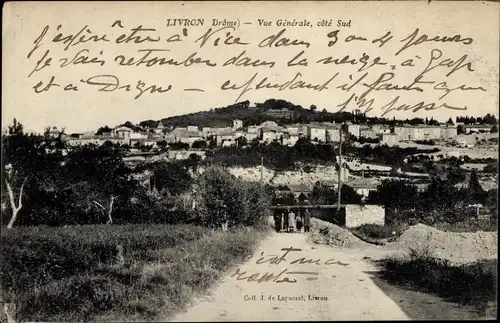 LIVRON Drôme) — Vue Générale, côté Sud
J'espère être à Nice dans 3 ou 4 jours
je vais retomber dans la neige à Gap
et à Digne cependant il faut
que j'y passe
c'est ma
route
Coll. J. de Laparral, Livron